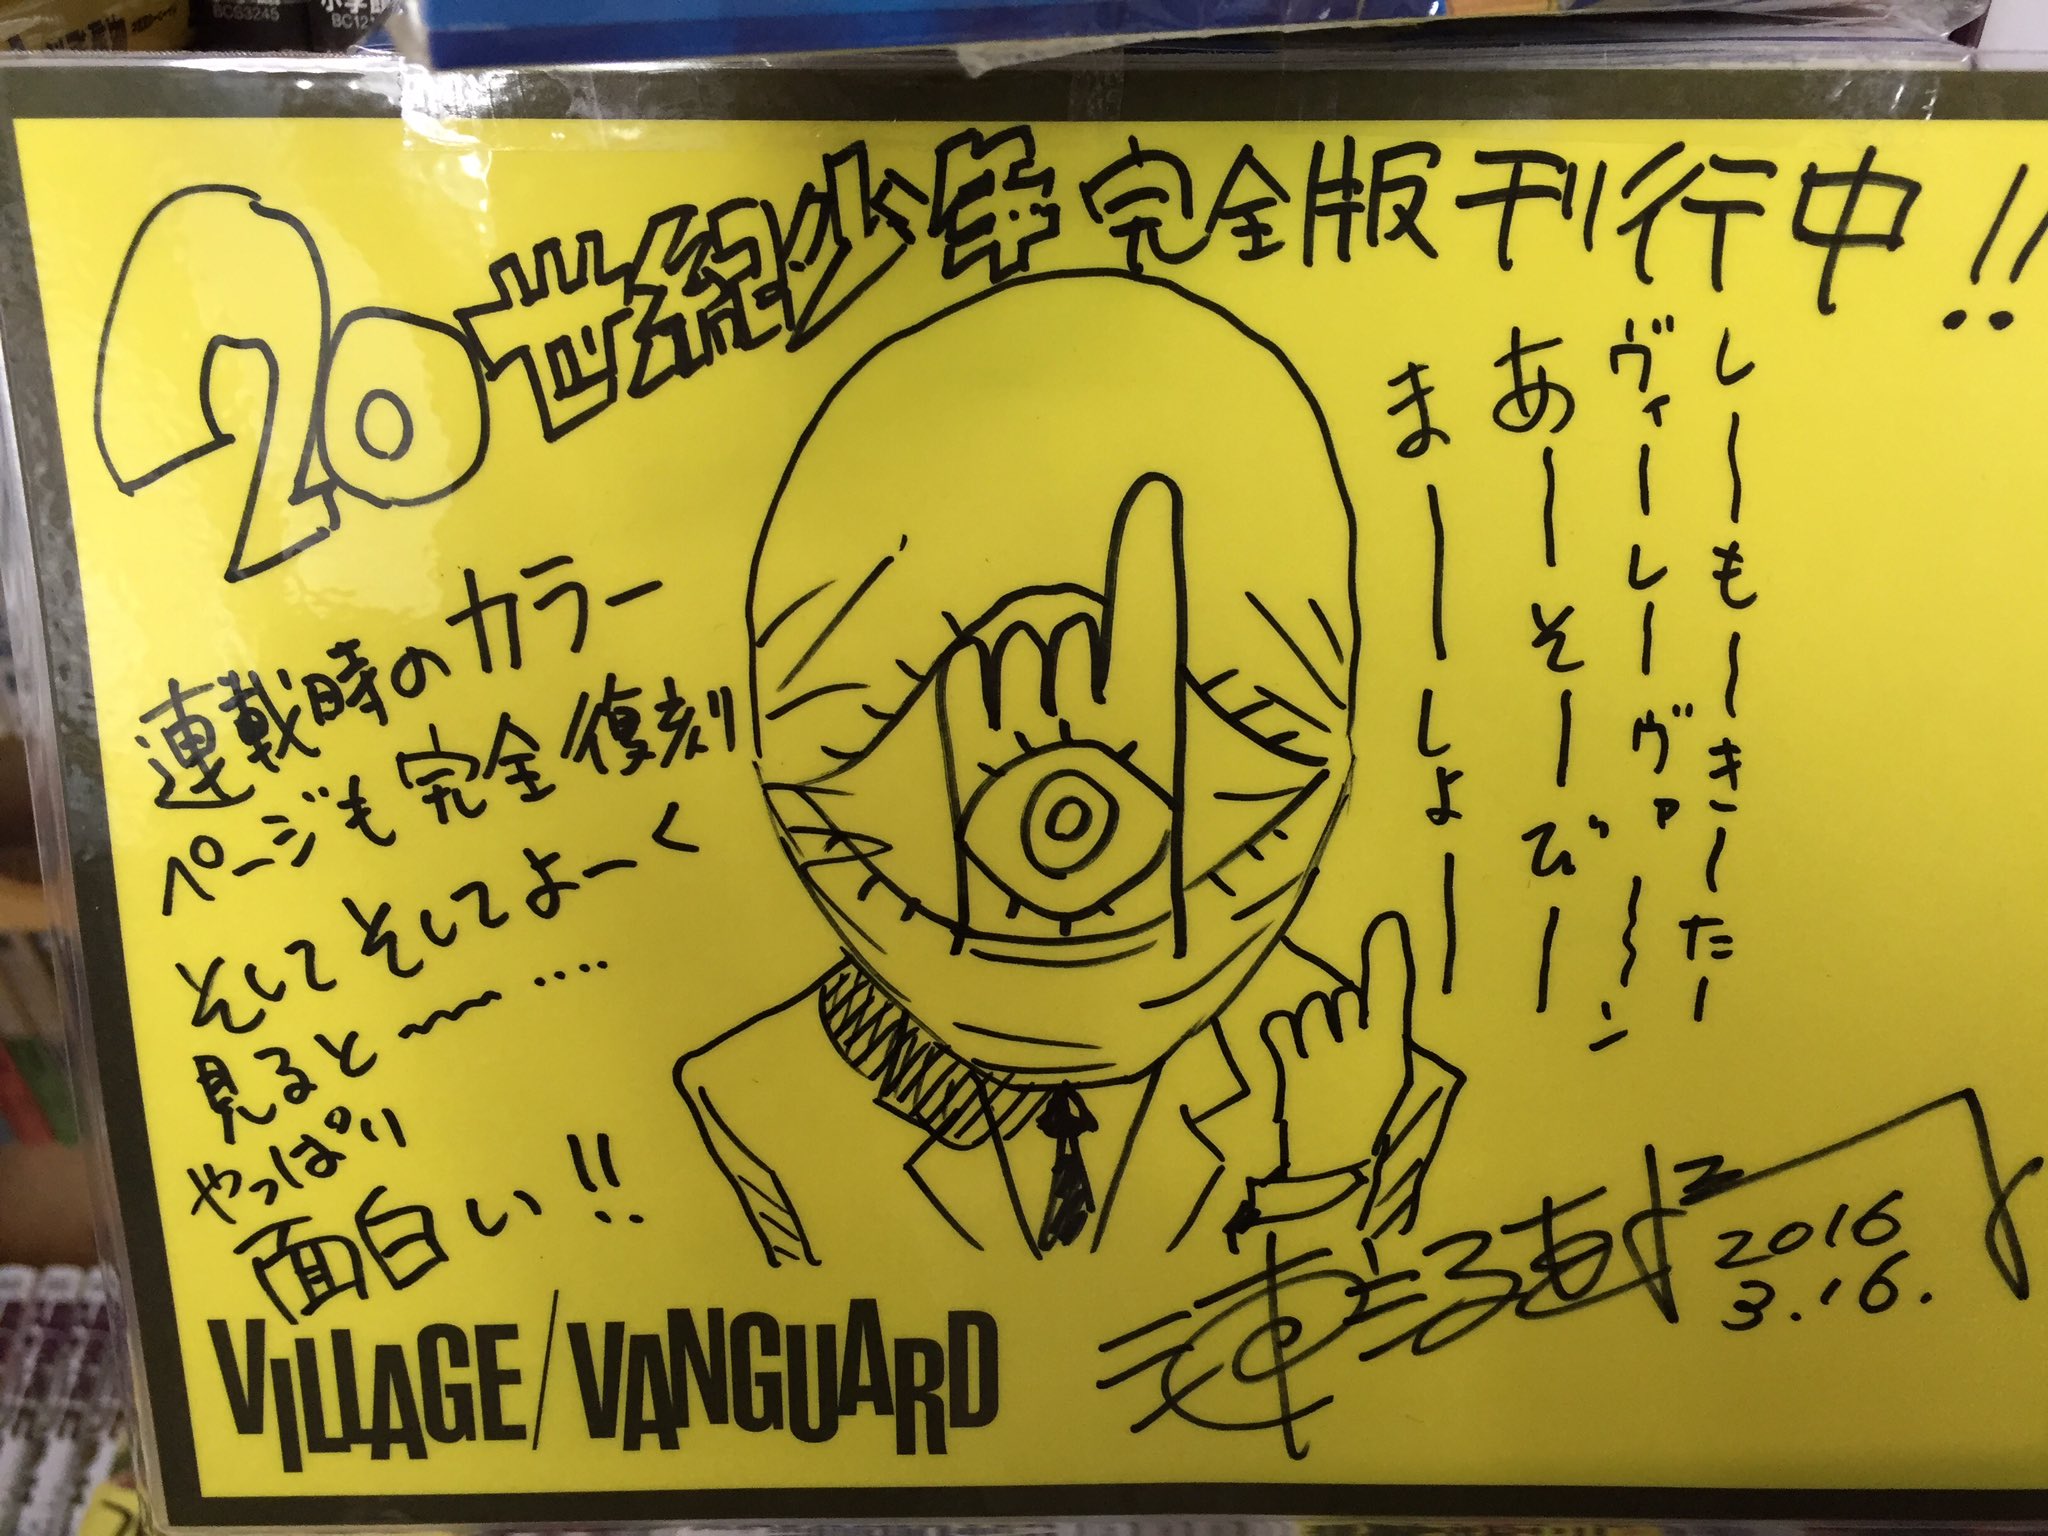 BCS3245
20世紀少年完全版刊行中!!
しーもーきーたー
ヴィーレーヴァ〜ン
あーそーびー
まーしょー
連載時のカラー
ページも完全復刻
そしてそしてよーく
見ると〜‥‥
やっぱり
面白い!!
2016
3.16.
VILLAGE/VANGUARD